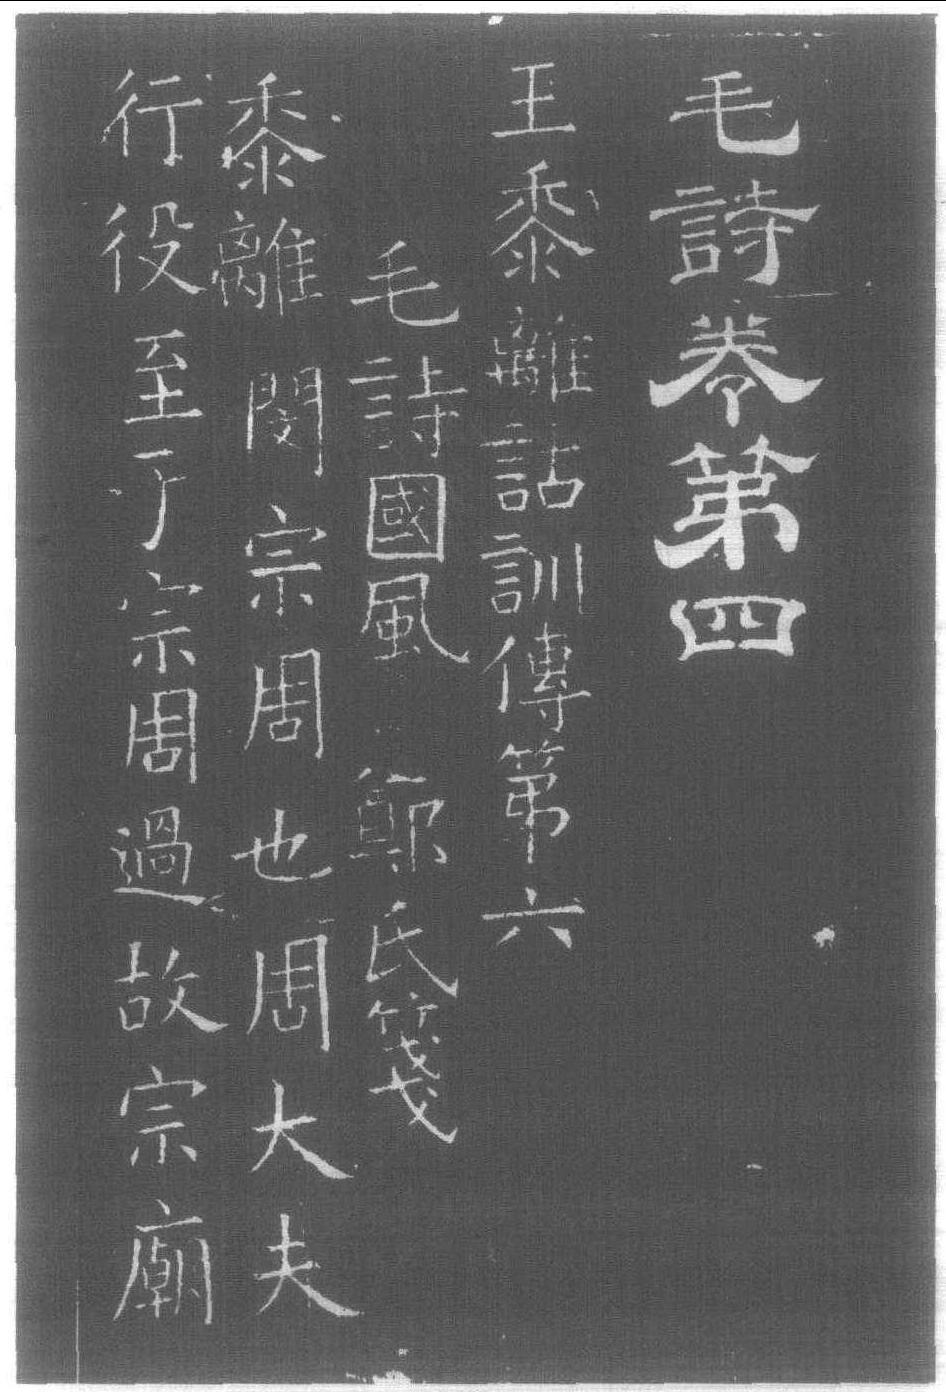 毛詩卷第四
王黍離詁訓傳第六
毛詩國風 鄭氏箋
黍離閔宗周也周大夫
行役至于宗周過故宗廟